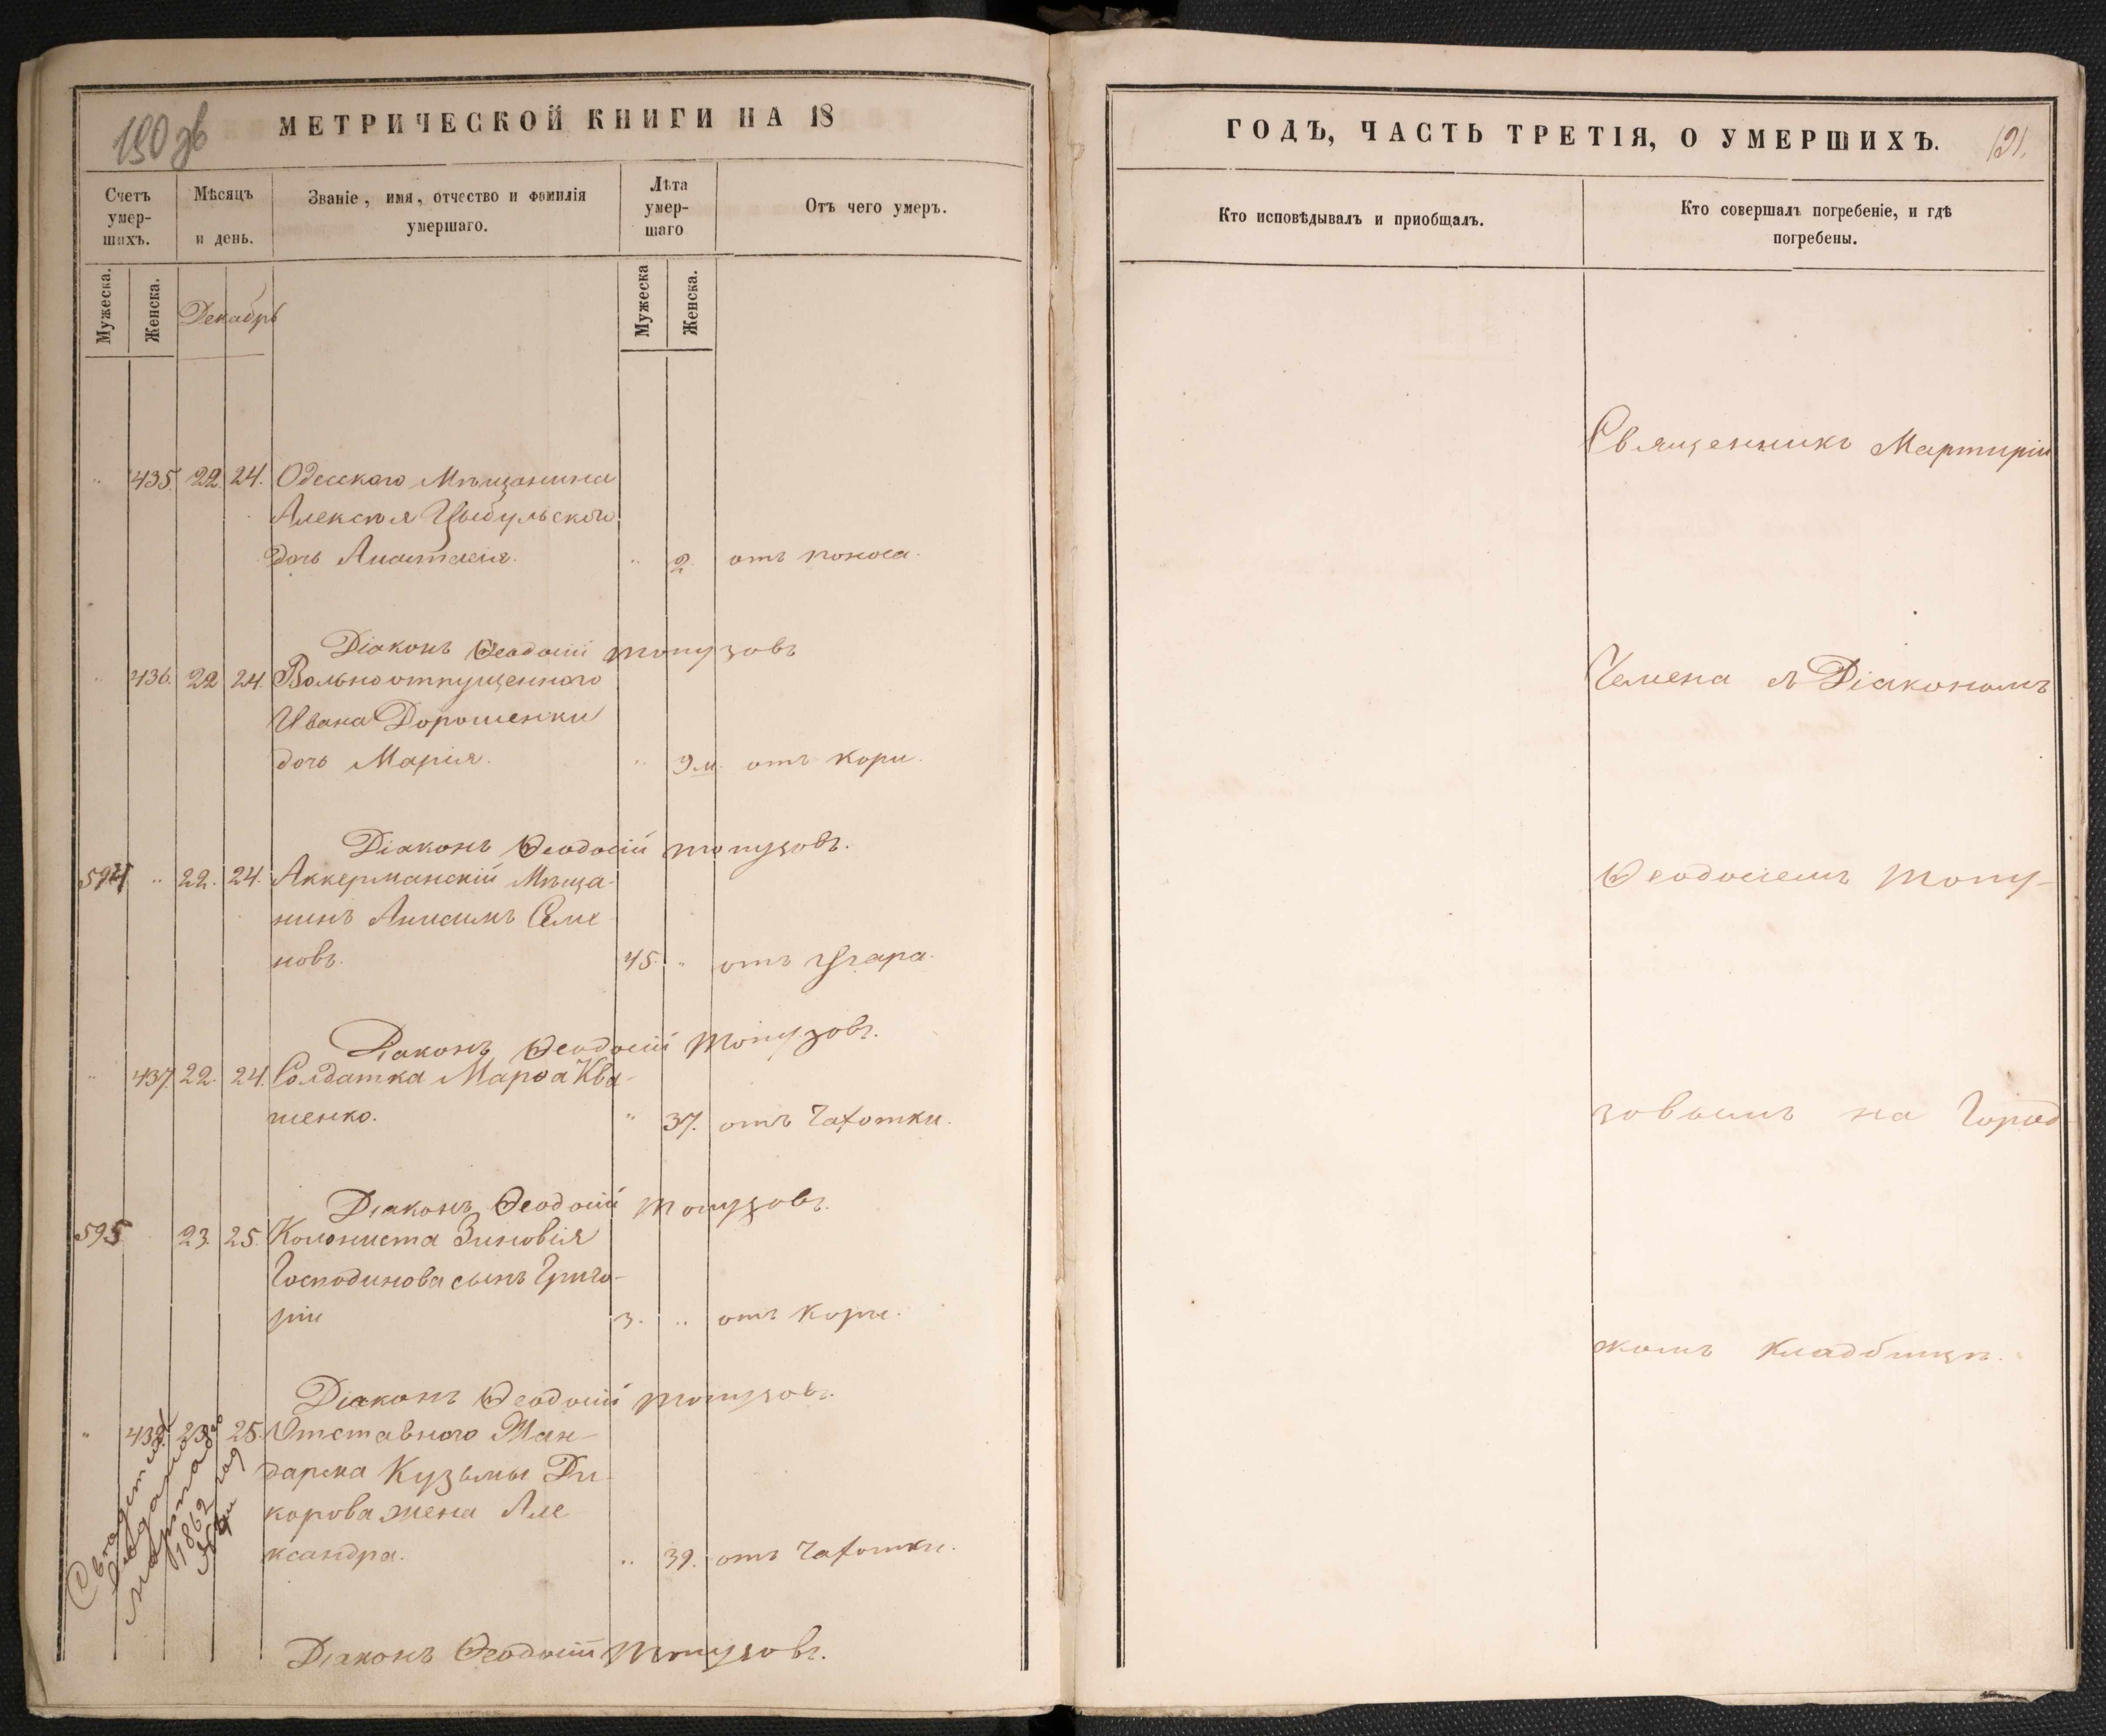 190 зв
МЕТРИЧЕСКОЙ КНИГИ НА 18
Счетъ умер-шихъ.
Мѣсяцъ и день.
Званіе, имя, отчество и фамилія умершаго.
Лѣта умер-шаго
Отъ чего умеръ.
Мужеска.
Женска.
Декабрь
Мужеска
Женска.
" 435. 22. 24. Одесскаго Мѣщанина
Алексѣя Цыбульскаго
дочь Анастасія. " 2. отъ поноса.
Діаконъ Ѳеодосій Топузовъ
" 436. 22 24. Вольноотпущеннаго
Ивана Дорошенки
дочь Марія. " 9 м. отъ кори.
Діаконъ Ѳеодосій Топузовъ.
594 " 22. 24. Аккерманскій Мѣща-
нинъ Анисимъ Семе-
новъ. 45. " отъ Угара.
Діаконъ Ѳеодосій Топузовъ.
" 437. 22. 24. Солдатка Марѳа Ква-
шенко. " 37. отъ Чахотки.
Діаконъ Ѳеодосій Топузовъ.
595 23. 25. Колониста Зиновія
Господинова сынъ Григо-
рій 3. " отъ Кори.
Діаконъ Ѳеодосій Топузовъ.
" 438. 23. 25. Отставного Жан-
дарма Кузьмы Ди-
корова жена Але-
ксандра. " 39. отъ Чахотки.
марта
1862 год
Діаконъ Ѳеодосій Топузовъ.
ГОДЪ, ЧАСТЬ ТРЕТІЯ, О УМЕРШИХЪ.
191.
Кто исповѣдывалъ и пріобщалъ.
Кто совершалъ погребеніе, и гдѣ погребены.
Священникъ Мартирій
Чемена съ Діакономъ
Ѳеодосіемъ Топу-
зовымъ на Город
скомъ Кладбищѣ.